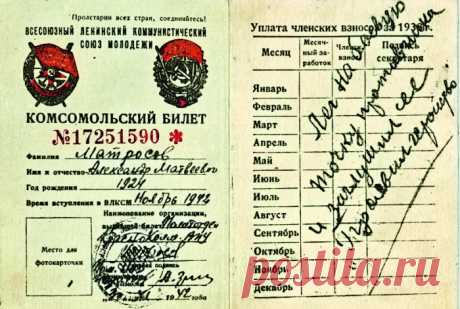 "Пролетарии всех стран, соединяйтесь!"
ВСЕСОЮЗНЫЙ ЛЕНИНСКИЙ КОММУНИСТИЧЕСКИЙ
СОЮЗ МОЛОДЕЖИ
КОМСОМОЛЬСКИЙ БИЛЕТ
№17251590 *
Фамилия Матросов
Имя и отчество Александр Матвеевич
Год рождения 1924
Время вступления в ВЛКСМ Ноябрь 1942
Наименование организации,
выдавшей билет
Место для
фотокарточки
1942 года
Уплата членских взносов за 193 г.
Месяц
Месяч-
ный за-
работок
Членск.
взнос
Подпись
секретаря
Январь
Февраль
Март
Апрель
Май
Июнь
Июль
Август
Сентябрь
Октябрь
Ноябрь
Декабрь
Лег на боевую
точку противника
и заглушил ее
проявил геройство
posila.ru